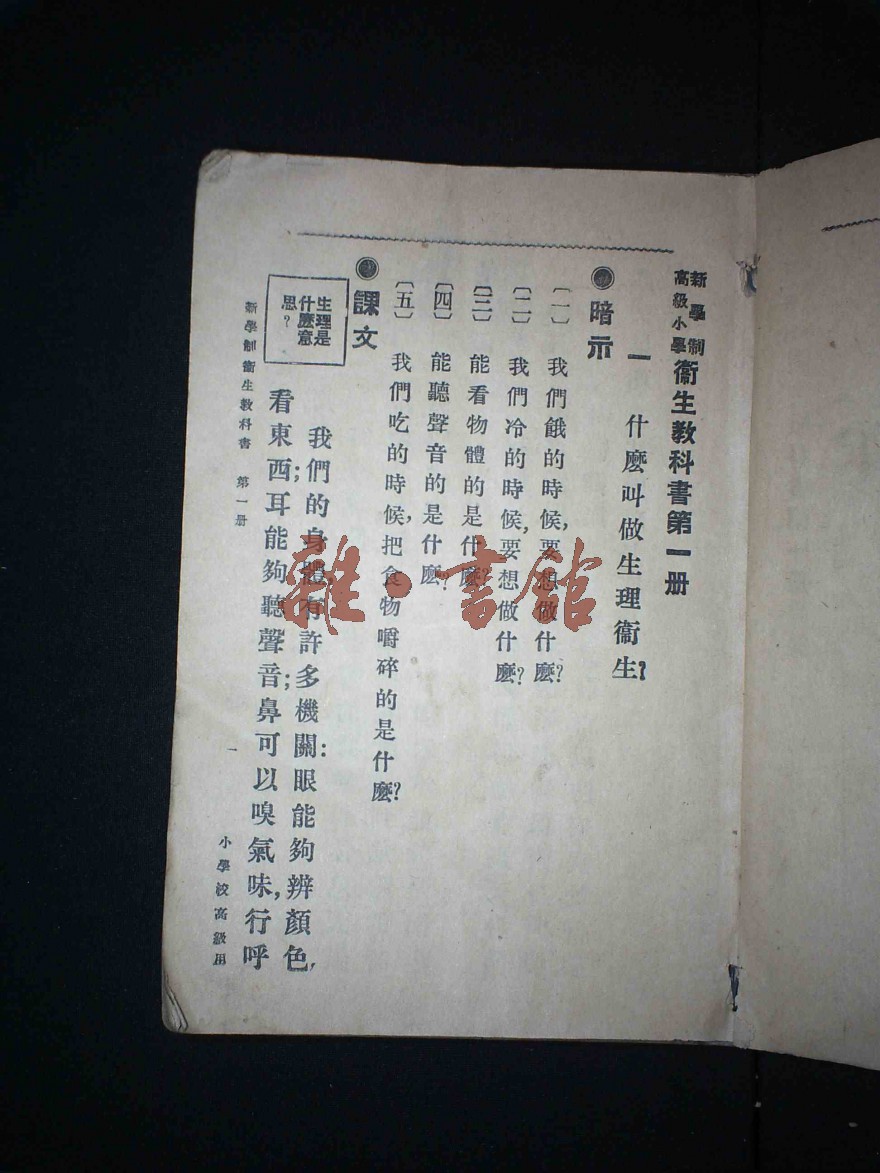 新學制
高級小學
衞生教科書第一册
一　什麼叫做生理衞生?
暗示
〔一〕　我們餓的時候,要想做什麼?
〔二〕　我們冷的時候,要想做什麼?
〔三〕　能看物體的是什麼?
〔四〕　能聽聲音的是什麼?
〔五〕　我們吃的時候,把食物嚼碎的是什麼?
課文
生理是
什麼意
思?
我們的身體,有許多機關:眼能夠辨顏色,
看東西;耳能夠聽聲音;鼻可以嗅氣味,行呼
新學制衞生教科書　第一册
一
小學校高級用
雜·書館